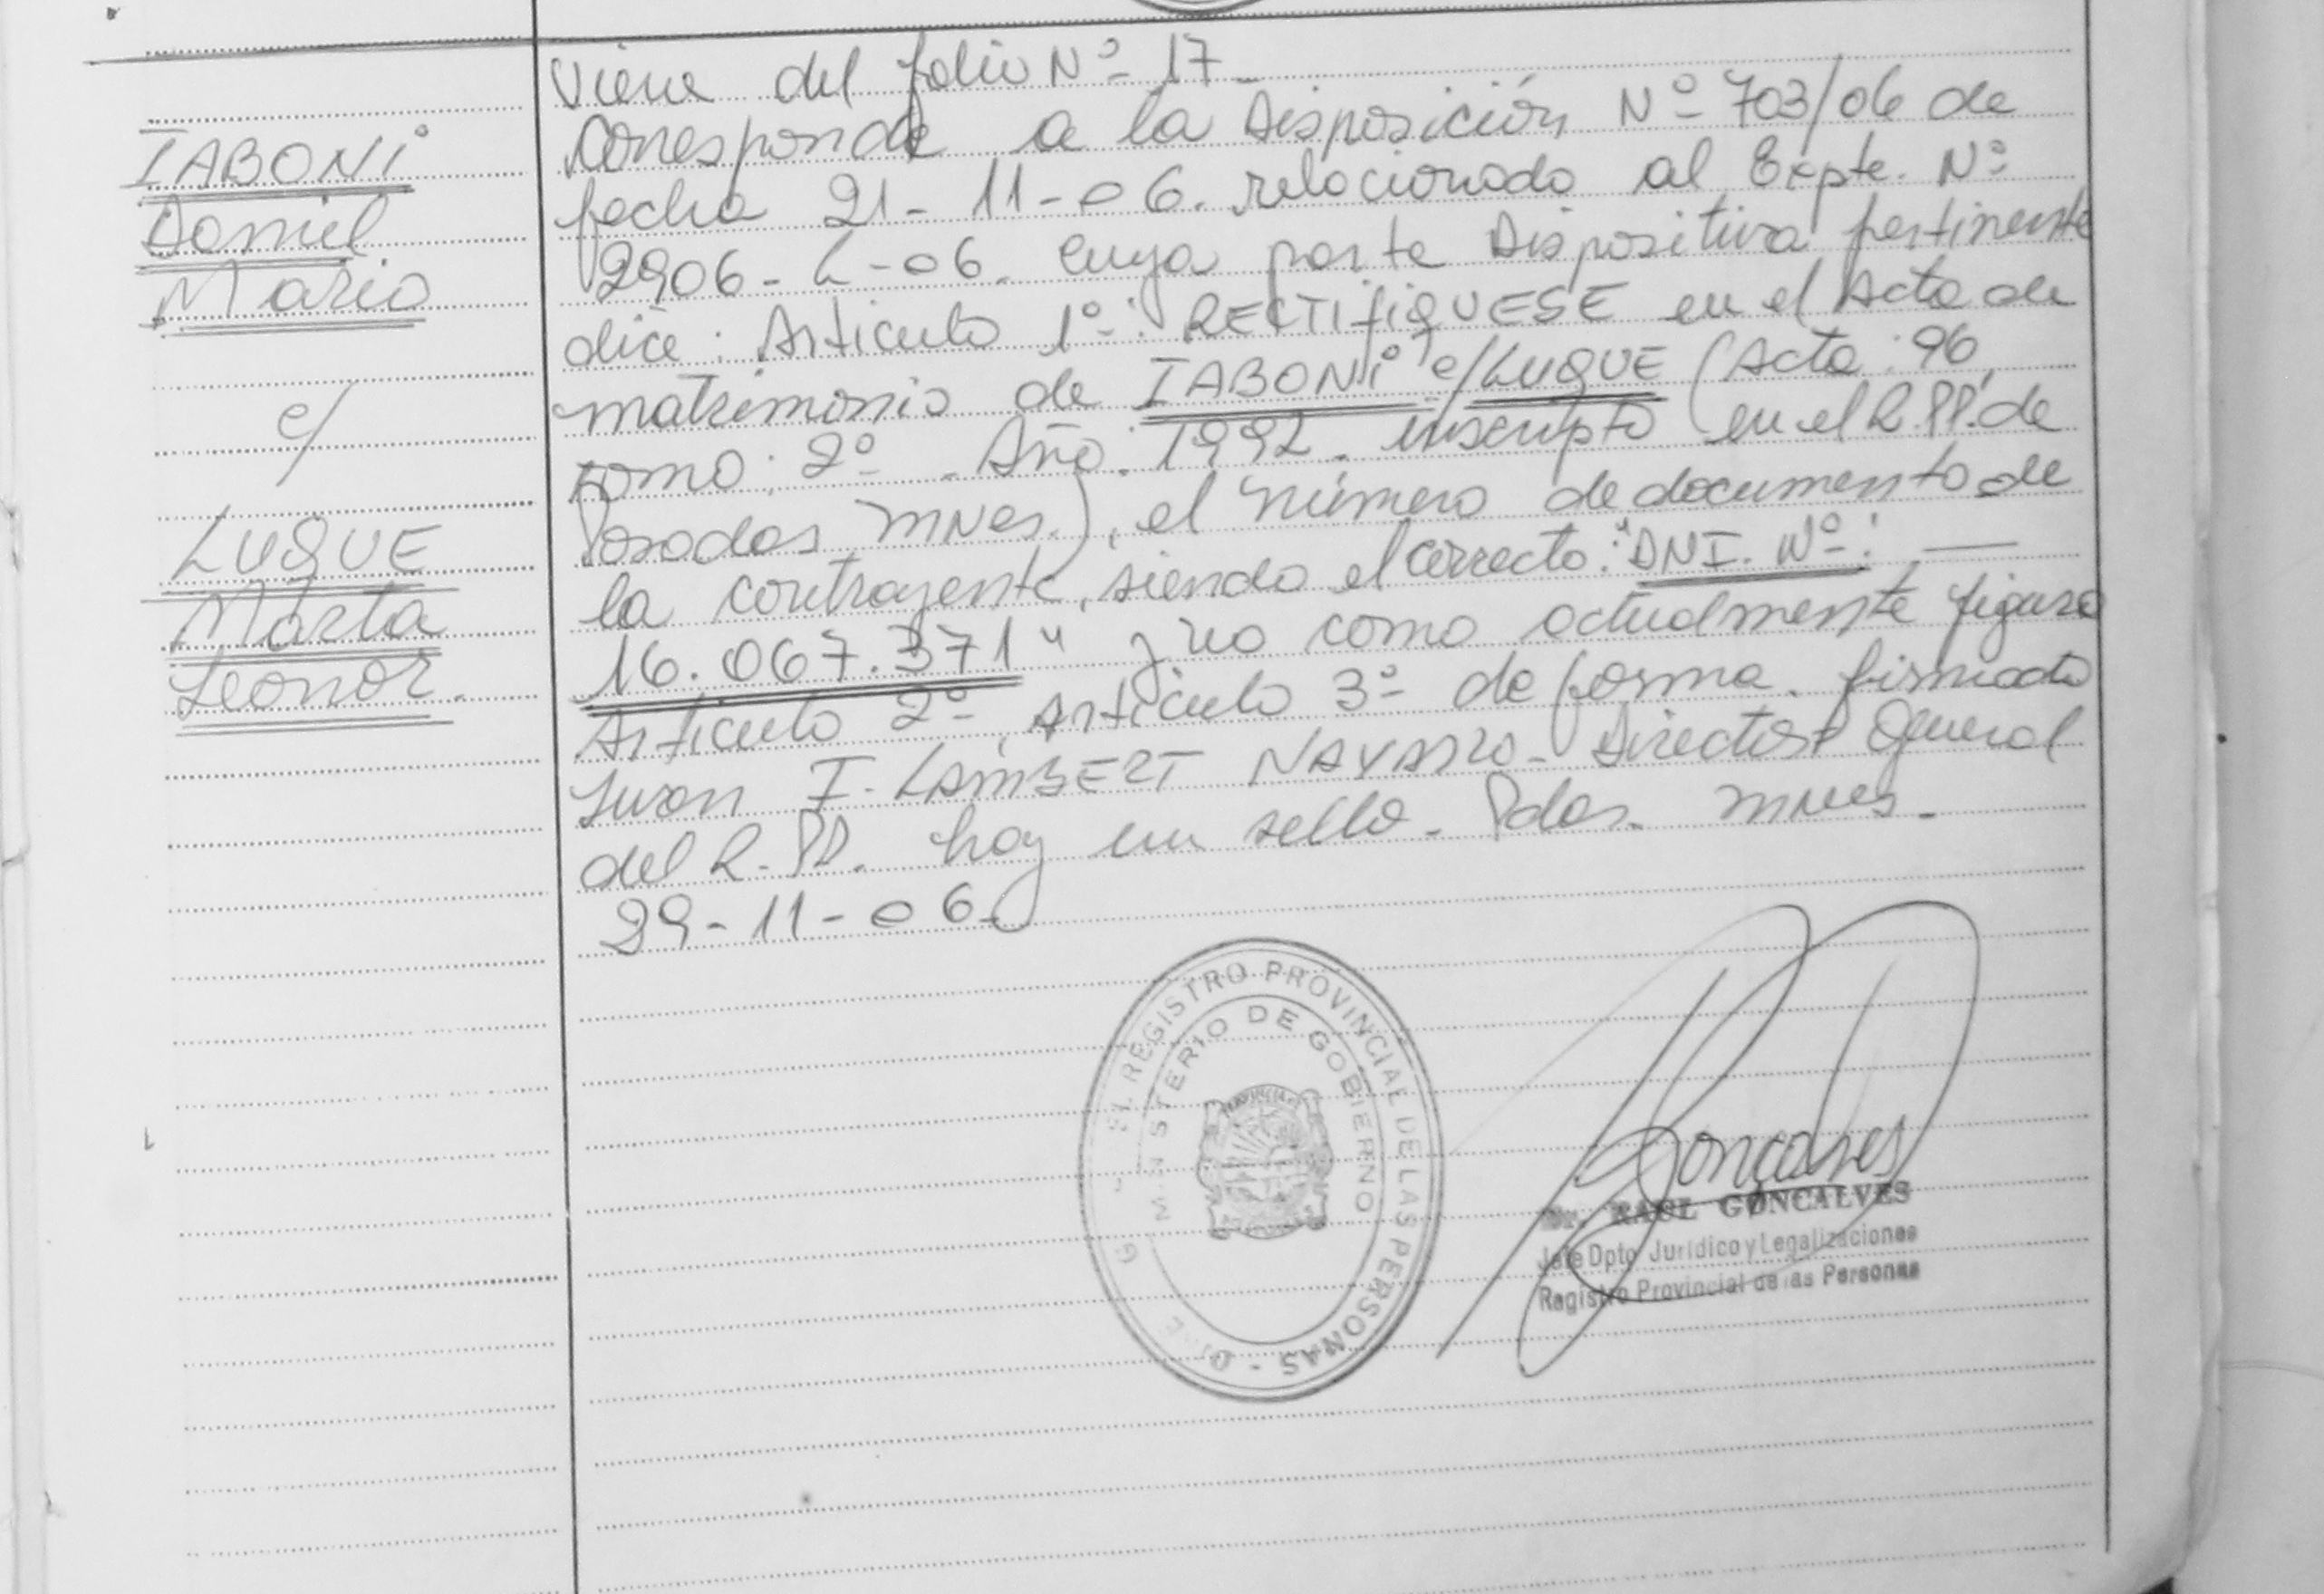 IABONI
Daniel
Mario
c/
LUQUE
Marta
Leonor.
Viene del folio Nº 17-
Corresponde a la Disposición Nº 703/06 de
fecha 21-11-06. relacionado al Expte. Nº
2906-L-06. cuya parte Dispositiva pertinente
dice: Articulo 1º: RECTIFIQUESE en el Acta de
matrimonio de IABONI c/LUQUE (Acta: 96,
tomo: 2º. Año: 1992. inscripto en el R.PP. de
Posadas Mnes.), el número de documento de
la contrayente, siendo el correcto: "DNI. Nº: —
16.067.371" y no como actualmente figura
Articulo 2º, Articulo 3º de forma. firmado
Juan I. LAMBERT NAVARRO- Director General
del R.PP. hay un sello- Pdas. Mnes.-
29-11-06-
REGISTRO PROVINCIAL DE LAS PERSONAS -
MINISTERIO DE GOBIERNO
PROVINCIA
Goncalves
Dr. RAUL GONCALVES
Jefe Dpto Jurídico y Legalizaciones
Registro Provincial de las Personas